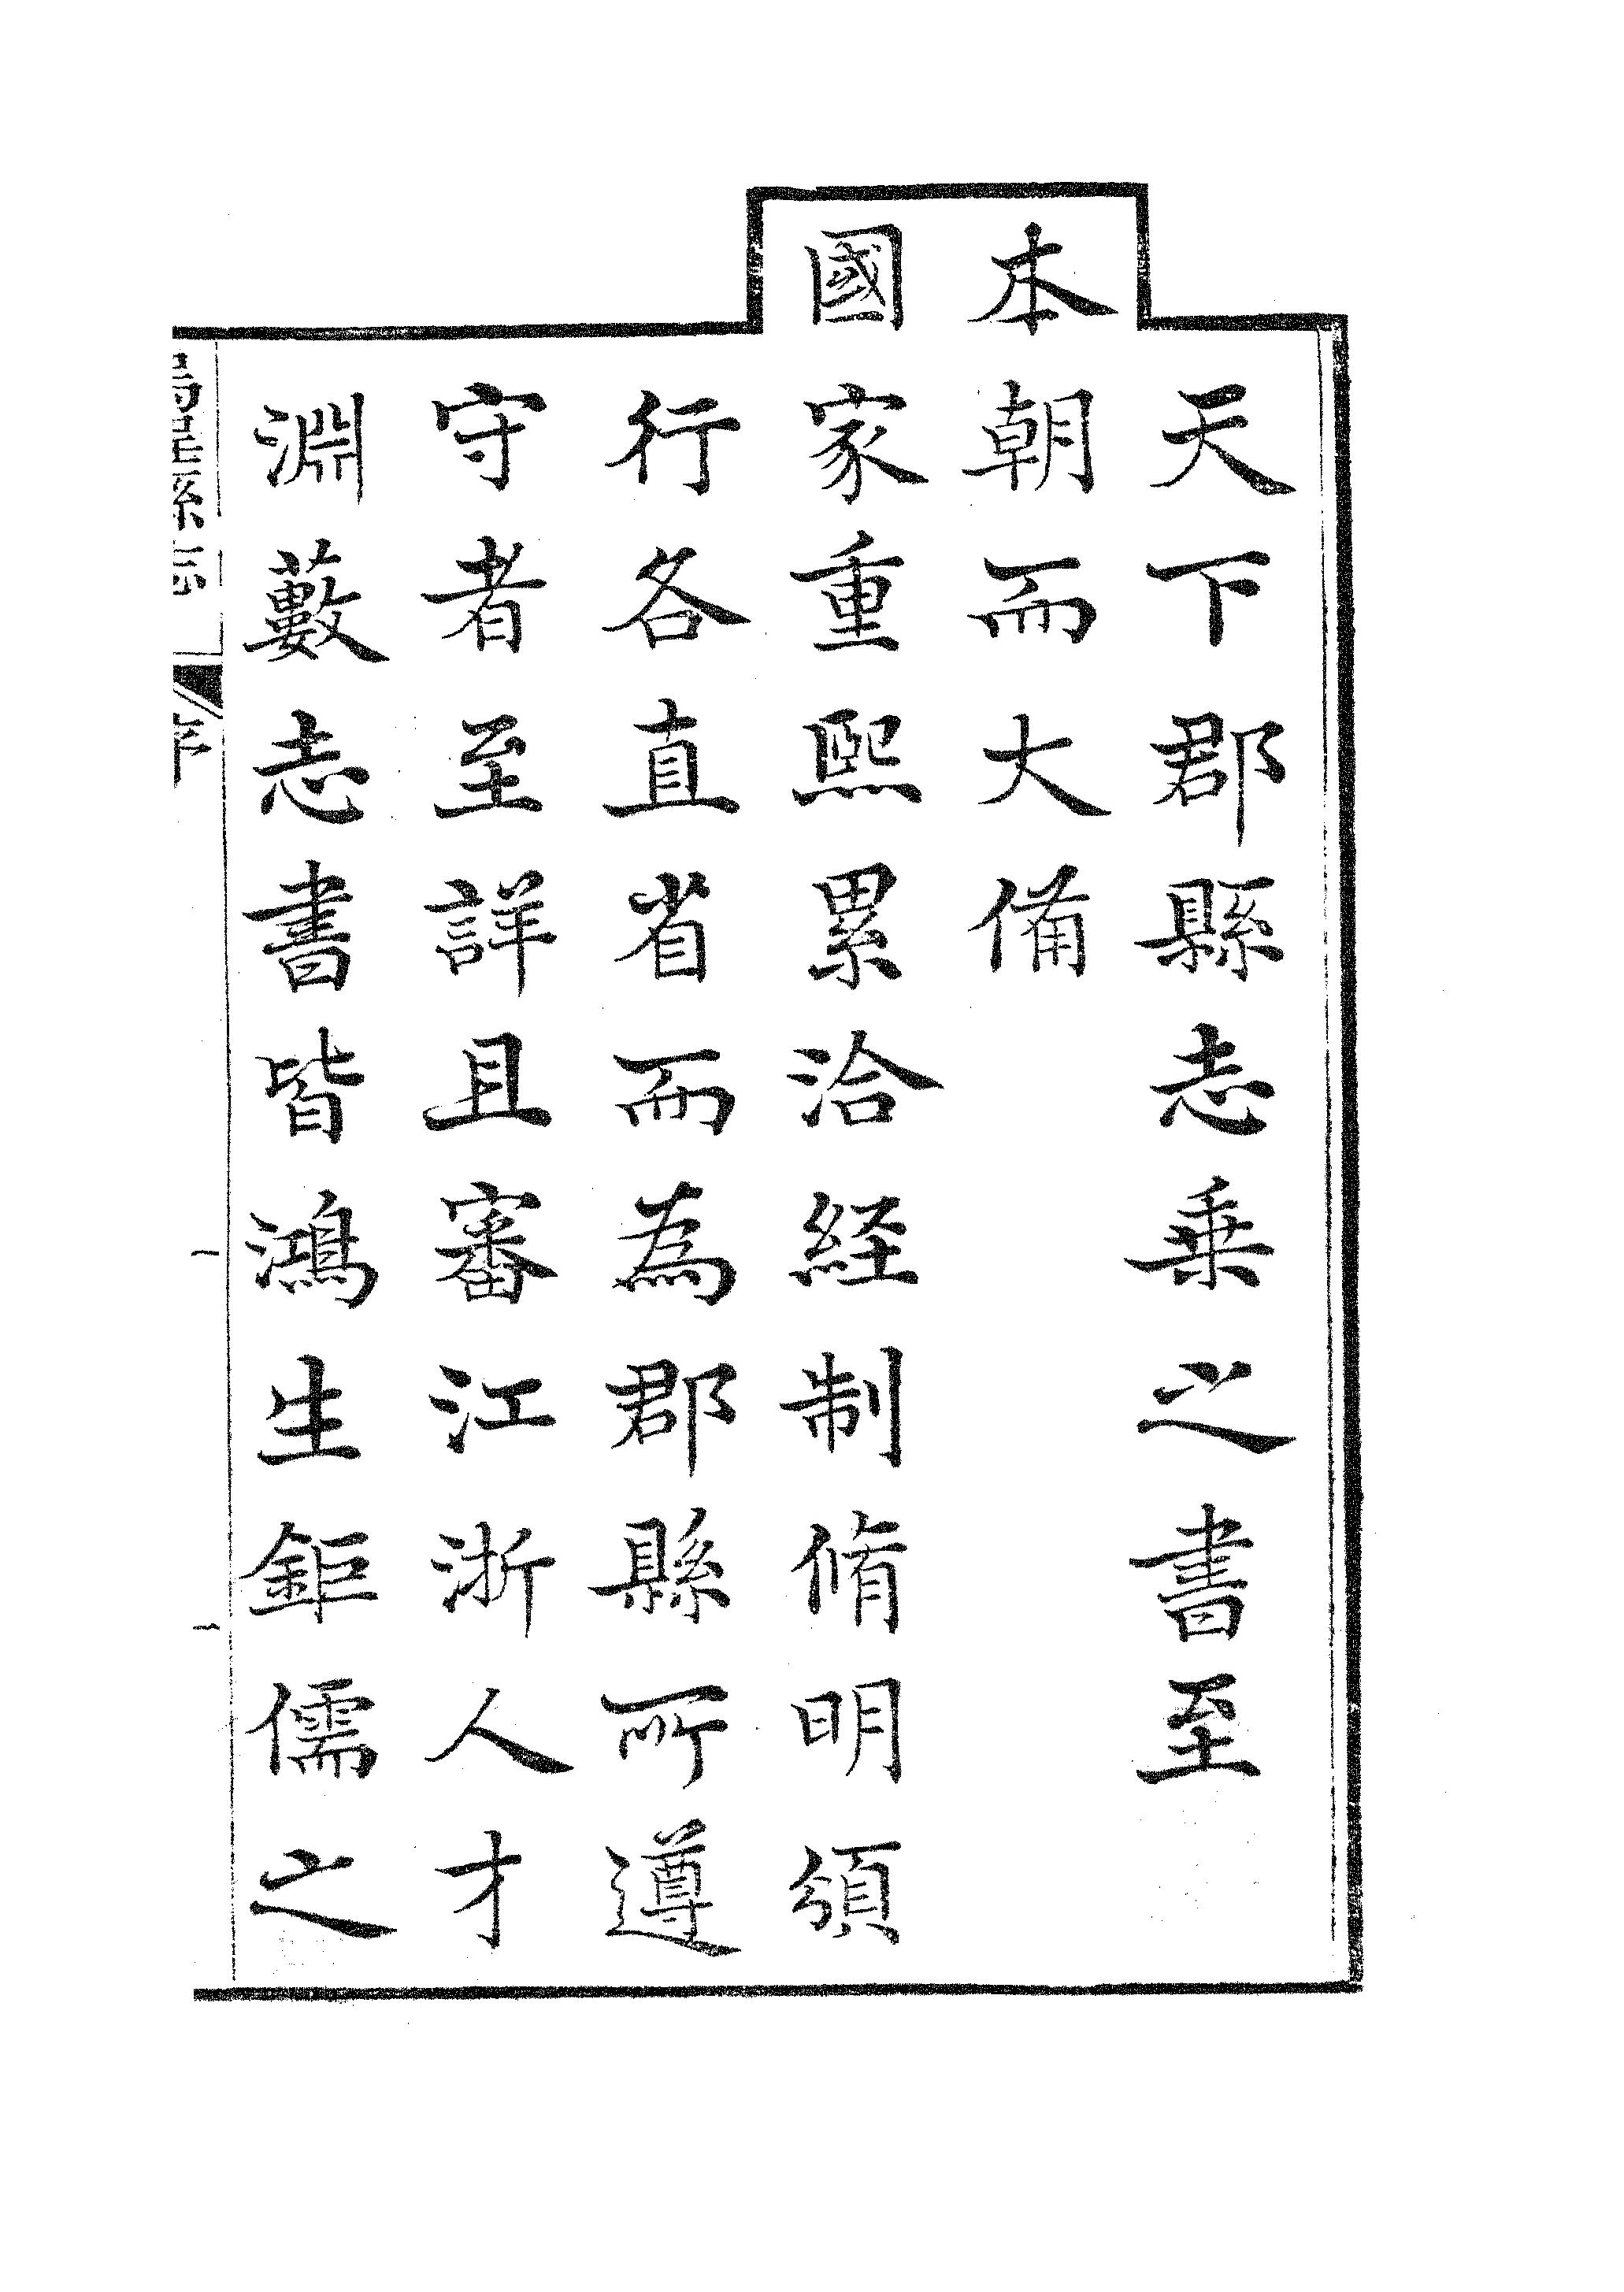 天下郡縣志乗之書至
本朝而大備
國家重熙累洽経制脩明頒
行各直省而為郡縣所遵
守者至詳且審江浙人才
淵藪志書皆鴻生鉅儒之
縣志
序
一
一